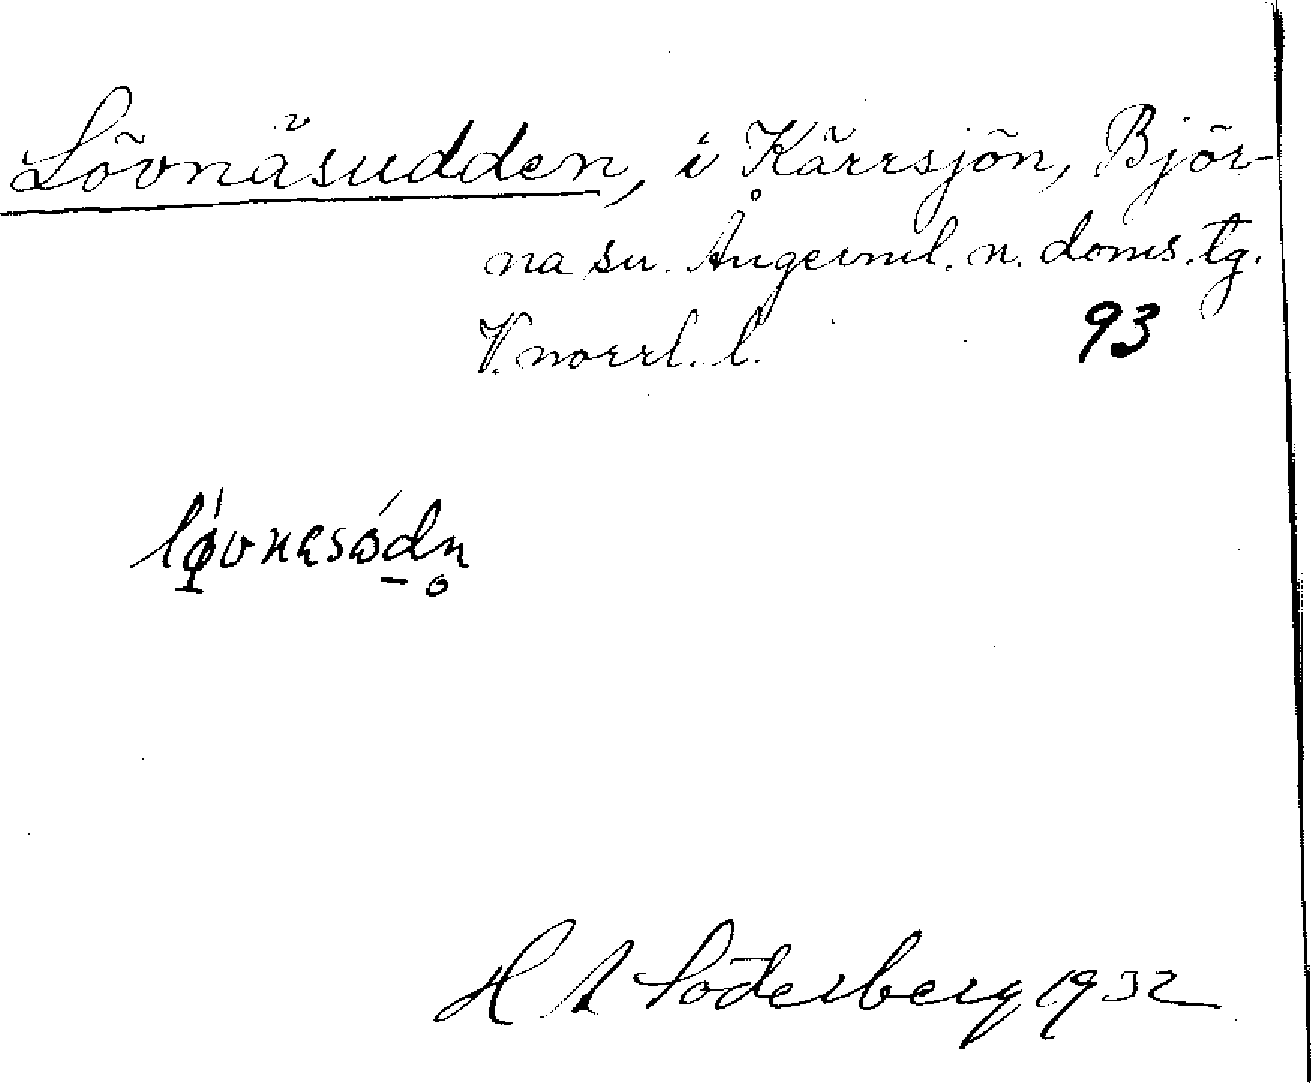 Lövnäsudden, i Kärrsjön, Björ-
na sn. Ångerml. n. doms. tg.
V. norrl. l. 93
lø̀vnasódn̥
H A Söderberg 1932